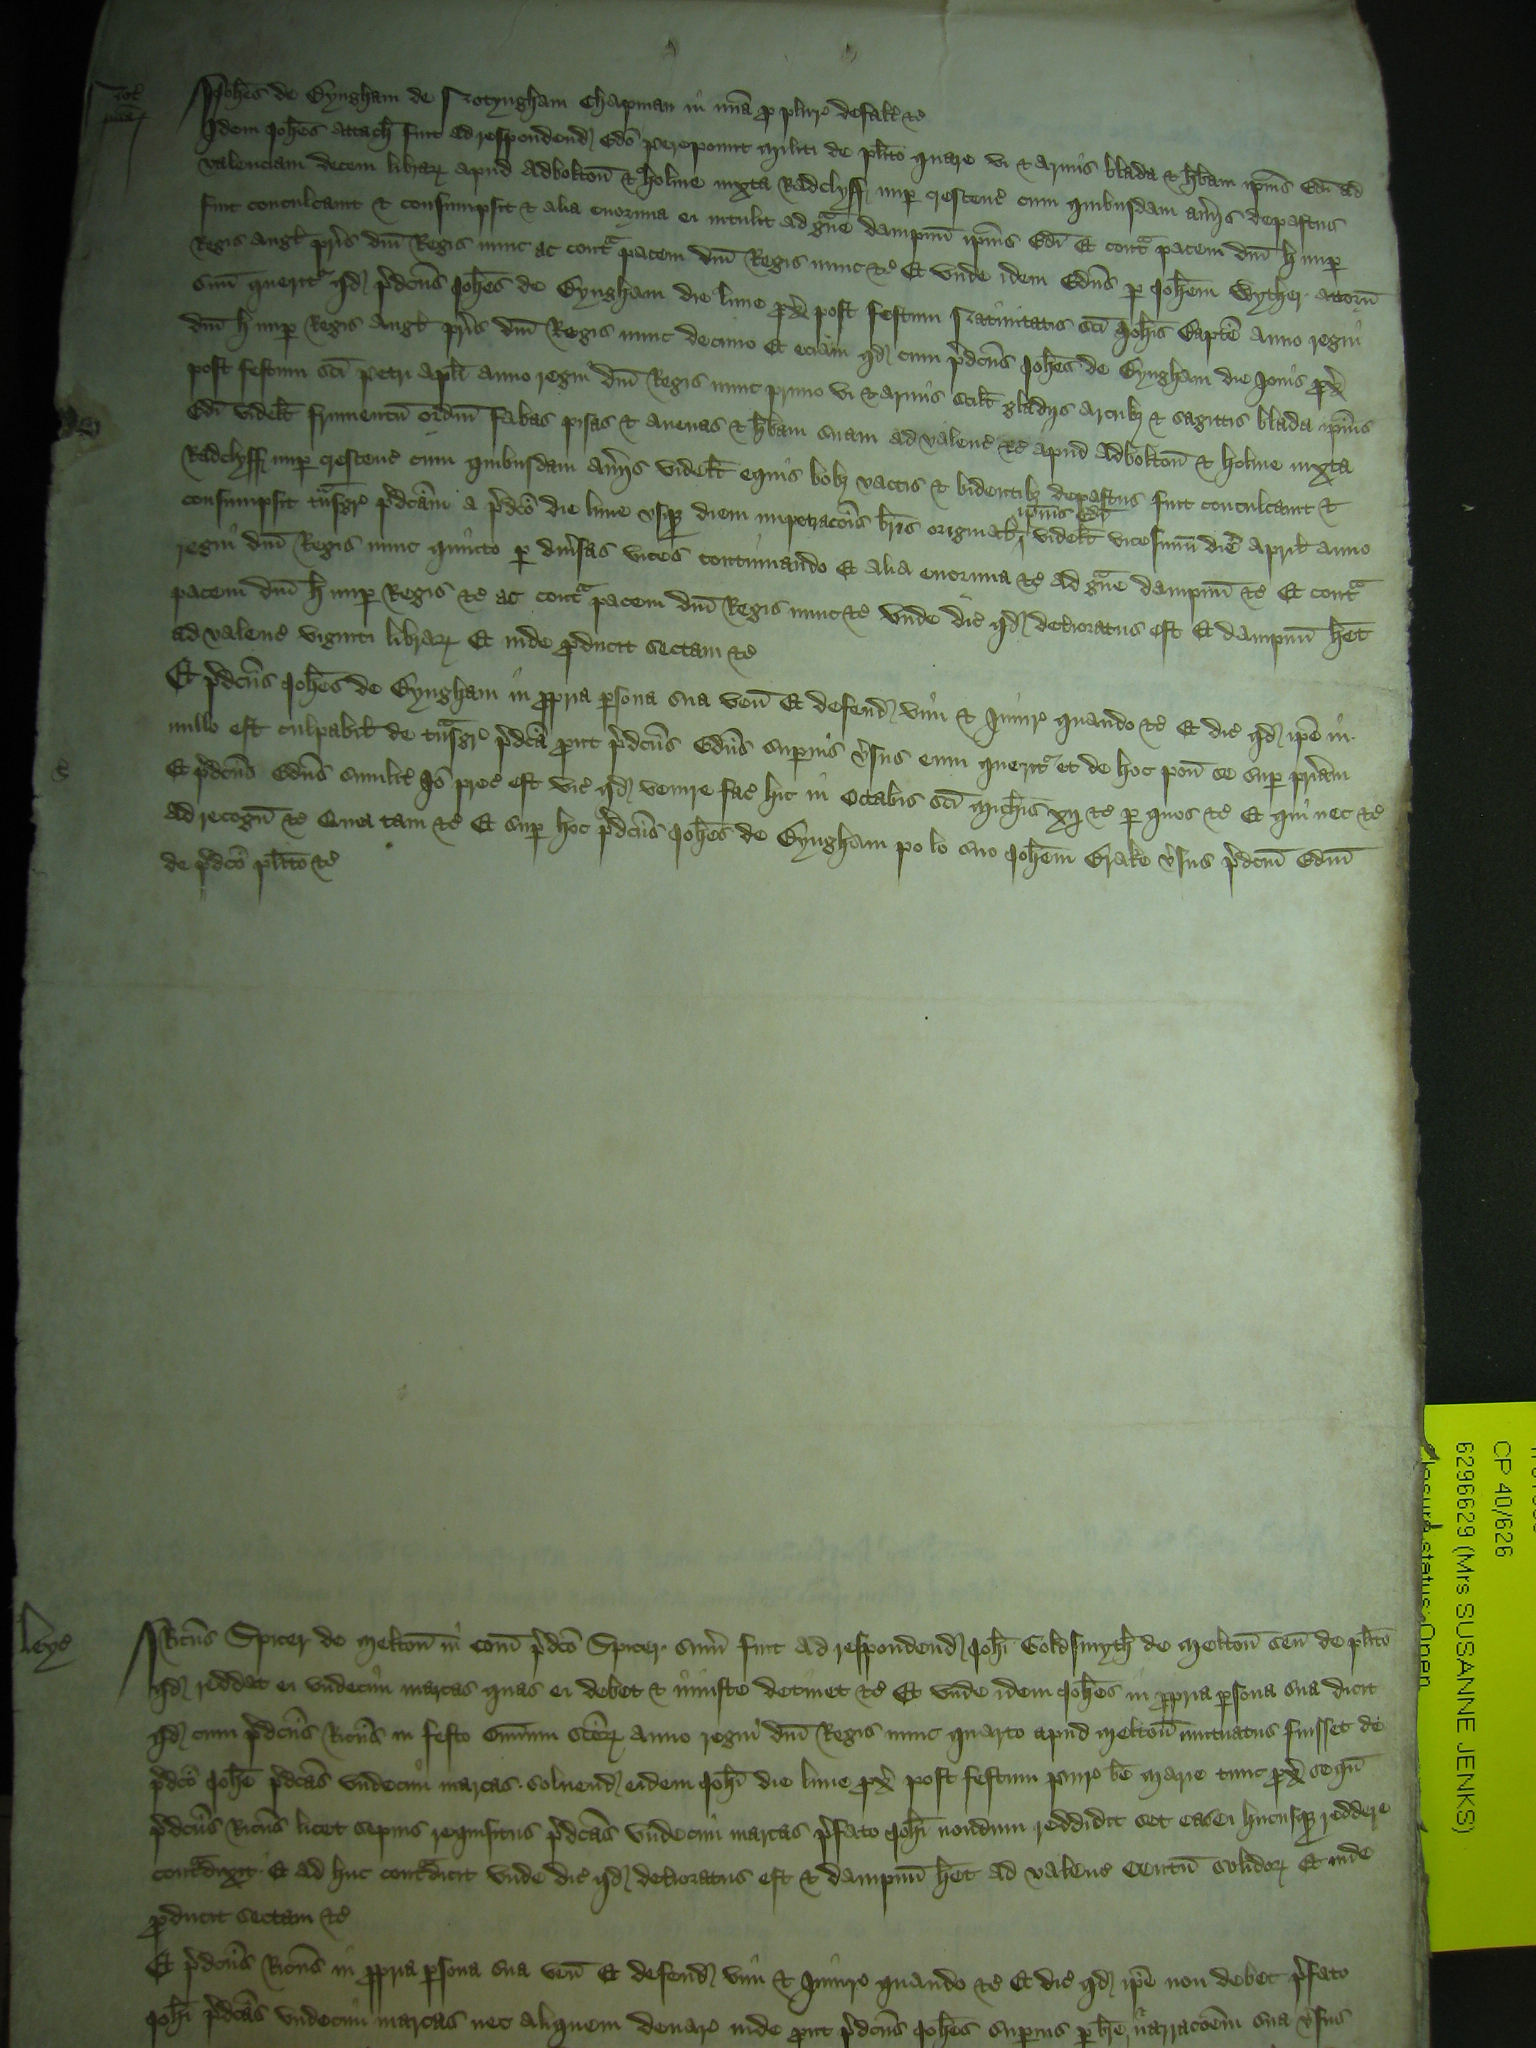 Not
Joh̄es de Byngham de Notyngham Chapman in mĩa p̱ plur̛ defalt̛ ⁊c̛
Idem Joh̄es attach̄ fuit ad respondend̛ Edō Perepount militi de pl̄ito quare vi ⁊ armis blada ⁊ h̛bam ip̄ius Edi ad
valenciam decem librar̛ apud Adbolton̄ ⁊ Holme iuxta Radclyff nup̱ crescenc̛ cum quibusdam aīalijs depastus
fuit conculcauit ⁊ consumpsit ⁊ alia enormia ei intulit ad g̛ue dampnū ip̄ius Edi Et cont̛ pacem dn̄i H nup̱
Regis Angl̛ pr̄is dn̄i Regis nunc ac cont̛ pacem dn̄i Regis nunc ⁊c̛ Et vnde idem Edūs p̱ Joh̄em Wyther attorn̄
suū querit̛ qd̛ p̛dc̄us Joh̄es de Byngham die lune p̱x̄ post festum Natiuitatis sc̄i Joh̄is Bapt̄e anno regni
dn̄i H nup̱ Regis Angl̛ pr̄is dn̄i Regis nunc decimo Et eciam qd̛ cum p̛dc̄us Joh̄es de Byngham die Jouis p̱x̄
post festum sc̄i Petri apl̄i anno regni dn̄i Regis nunc primo vi ⁊ armis scil̄t gladijs arcub̛ ⁊ sagittis blada ip̄ius
Edi videl̄t frumentū ordiū fabas pisas ⁊ auenas ⁊ h̛bam suam ad valenc̛ ⁊c̛ apud Adbolton̄ ⁊ Holme iuxta
Radclyff nup̱ crescenc̛ cum quibusdam aīalijs videl̄t equis bob̛ vaccis ⁊ bidentib̛ depastus fuit conculcauit ⁊
consumpsit tn̄sgr̛ p̛dc̄am a p̛dc̄o die lune vsq̛ diem impetrac̄ois br̄is original̛ ip̄ius Edi videl̄t vicesimū diē April̛ anno
regni dn̄i Regis nunc quinto p̱ diưsas vices continuando Et alia enormia ⁊c̛ ad g̛ue dampnū ⁊c̛ Et cont̛
pacem dn̄i H nup̱ Regis ⁊c̛ ac cont̛ pacem dn̄i Regis nunc ⁊c̛ vnde dic̛ qd̛ deterioratus est Et dampnū h̄et
ad valenc̛ viginti librar̛ Et inde p̱ducit sectam ⁊c̛
Et p̛dc̄us Joh̄es de Byngham in p̱pria p̱sona sua ven̄ Et defend̛ vim ⁊ Iniur̛ quando ⁊c̛ Et dic̛ qd̛ ip̄e in
nullo est culpabil̛ de tn̄sgr̛ p̛dc̄a prout p̛dc̄us Edūs sup̱ius v̛sus eum querit̛ et de hoc pon̄ se sup̱ pr̄iam
Et p̛dc̄us Edūs similit̛ Iō prec̛ est vic̛ qd̛ venire fac̛ hic in Octabis sc̄i Mich̄is xij ⁊c̛ p̱ quos ⁊c̛ Et qui nec ⁊c̛
ad recogn̄ ⁊c̛ Quia tam ⁊c̛ Et sup̱ hoc p̛dc̄us Joh̄es de Byngham po lo suo Joh̄em Brake v̛sus p̛dc̄m Edm̄
de p̛dc̄o pl̄ito ⁊c̛
Leyc̛
Ric̄us Spicer de Melton̄ in com̄ p̛dc̄o Spicer sum̄ fuit ad respondend̛ Joh̄i Goldsmyth̄ de Melton̄ sen̄ de pl̄ito
qd̛ reddat ei vndecim marcas quas ei debet ⁊ iniuste detinet ⁊c̛ Et vnde idem Joh̄es in p̱pria p̱sona sua dicit
qd̛ cum p̛dc̄us Ric̄us in festo Omnium Sc̄or̛ anno regni dn̄i Regis nunc quarto apud Melton̄ mutuatus fuisset de
p̛dc̄o Joh̄e p̛dc̄as vndecim marcas soluend̛ eidem Joh̄i die lune p̱x̄ post festum Pur̛ b̄e Marie tunc p̱x̄ sequn̄
p̛dc̄us Ric̄us licet sepius requisitus p̛dc̄as vndecim marcas p̛fato Joh̄i nondum reddidit set eas ei hucusq̛ reddere
cont̛dixit Et ad huc cont̛dicit vnde dic̛ qd̛ deterioratus est ⁊ dampnū h̄et ad valenc̛ Centū solidor̛ Et inde
p̱ducit sectam ⁊c̛
Et p̛dc̄us Ric̄us in p̱pria p̱sona sua ven̄ Et defend̛ vim ⁊ Iniur̛ quando ⁊c̛ Et dic̛ qd̛ ip̄e non debet p̛fato
Joh̄i p̛dc̄as vndecim marcas nec aliquem denar̛ inde prout p̛dc̄us Joh̄es sup̱ius p̱ br̄e ⁊ narrac̄oem sua v̛sus
CP 40/626
6296629 (Mrs SUSANNE JENKS)
Closure status: Open